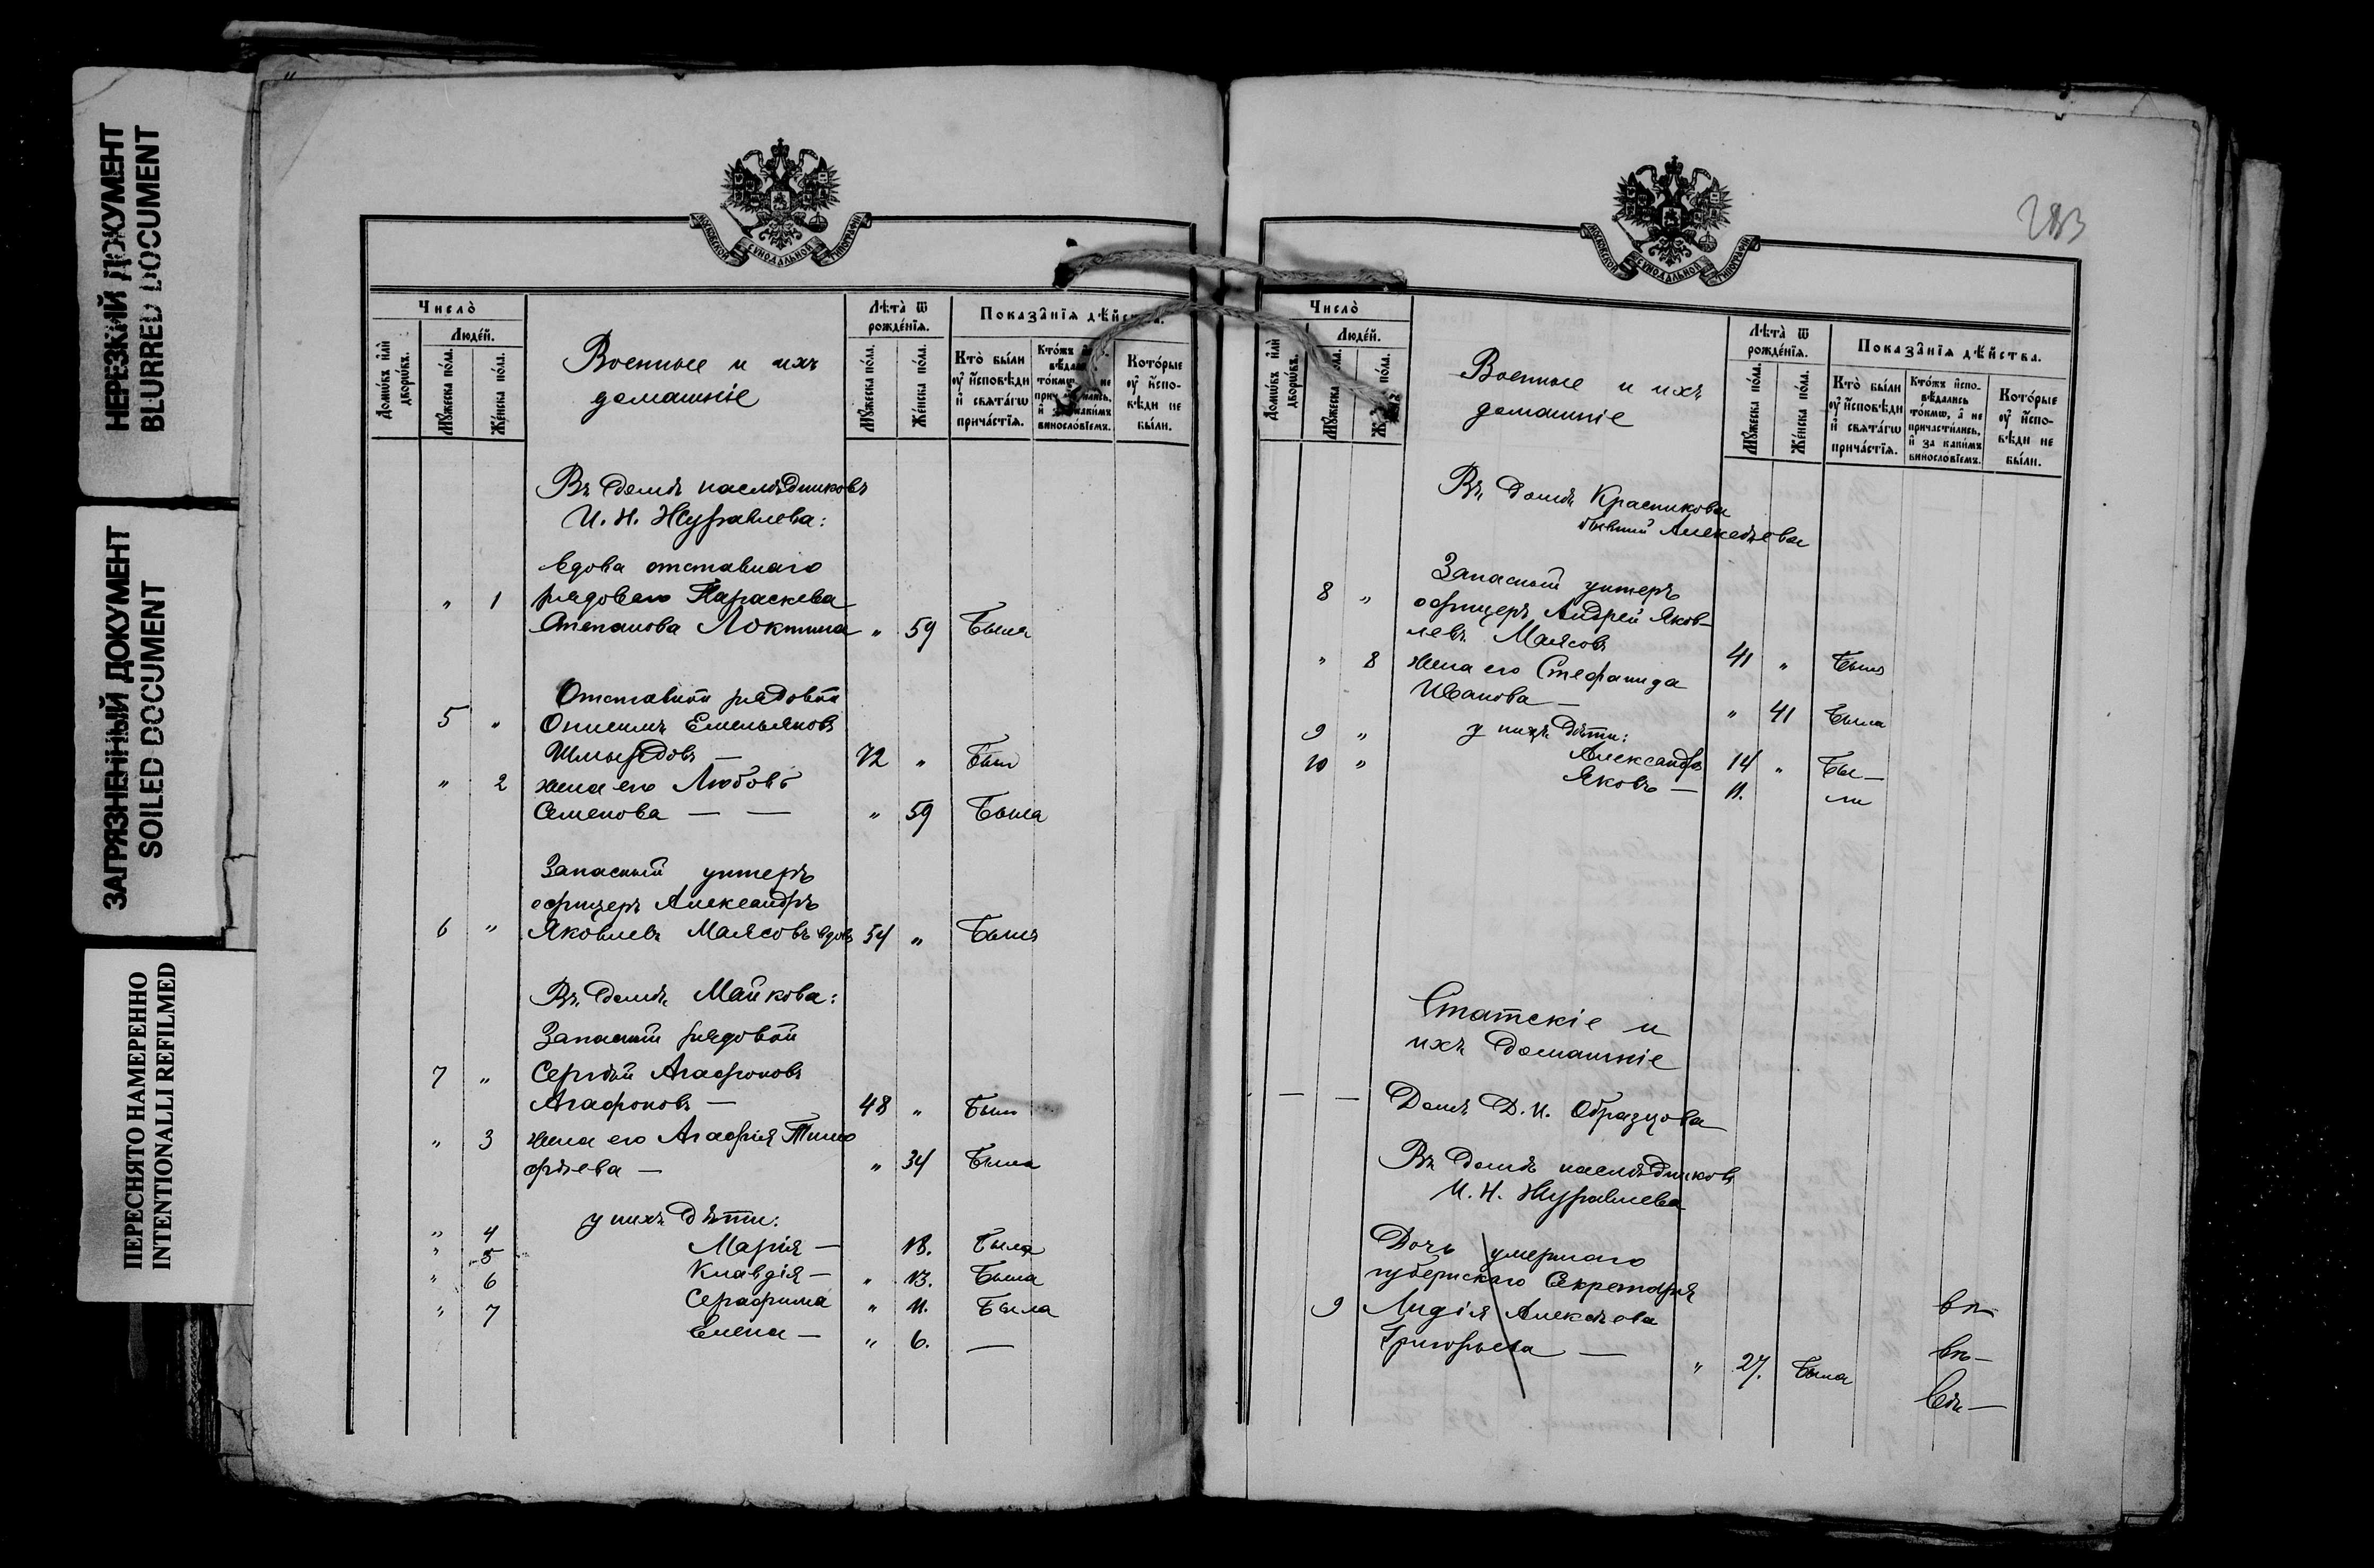 НЕРЕЗКИЙ ДОКУМЕНТ
BLURRED DOCUMENT
ЗАГРЯЗНЕННЫЙ ДОКУМЕНТ
SOILED DOCUMENT
ПЕРЕСНЯТО НАМЕРЕННО
INTENTIONALLI REFILMED
МОСКОВСКОЙ СѴНОДАЛЬНОЙ ТИПОГРАФІИ
Число̀
Людéй.
Домѡ́въ и҆лѝ дворѡ́въ.
Мꙋ́жеска по́ла.
Же́нска по́ла.
Военные и ихъ
домашніе
Лѣта̀ ѿ рожде́нїя.
Мꙋ́жеска по́ла.
Же́нска по́ла.
Показа̑нїѧ дѣ́йства.
Кто̀ бы́ли ᲂу҆ и҆́сповѣди и҆ свѧта́гѡ прича́стїѧ.
Кото́рые ᲂу҆ и҆́спо-вѣди не бы́ли.
Въ домѣ наслѣдниковъ
И. Н. Журавлева:
вдова отставнаго
" 1 рядоваго Параскева
Степанова Локтина " 59 Была
Отставной рядовой
5 " Онисимъ Емельяновъ
72 " Былъ
" 2 жена его Любовь
Семенова — — " 59 Была
Запасный унтеръ
офицеръ Александръ
6 " Яковлевъ Маясовъ вдовъ 54 " Былъ
Въ домѣ Майкова:
Запасный рядовой
7 " Сергѣй Агафоновъ
Агафоновъ — 48 " Былъ
" 3 жена его Агафія Тимо
фѣева — " 34 Была
у нихъ дѣти:
" 4 Марія — 18. Была
" 5 Клавдія — " 13. Была
" 6 Серафима " 11. Была
" 7 Елена — " 6. —
283
МОСКОВСКОЙ СѴНОДАЛЬНОЙ ТИПОГРАФІИ
Число̀
Людéй.
Домѡ́въ и҆лѝ дворѡ́въ.
Мꙋ́жеска по́ла.
по́ла.
Военные и ихъ
домашніе
Лѣта̀ ѿ рожде́нїя.
Мꙋ́жеска по́ла.
Же́нска по́ла.
Показа̑нїѧ дѣ́йства.
Кто̀ бы́ли ᲂу҆ и҆́сповѣди и҆ свѧта́гѡ прича́стїѧ.
Кто́жъ и҆спо-вѣ́дались то́кмѡ, а҆ не причасти́лись, и҆ за каки́мъ винослові́емъ.
Кото́рые ᲂу҆ и҆́спо-вѣди не бы́ли.
Въ домѣ Красникова
бывший Алексѣева
Запасный унтеръ
8 " офицеръ Андрей Яков-
левъ Маясовъ 41 " Былъ
" 8 жена его Стефанида
Иванова — " 41 Была
9 " у нихъ дѣти:
10 " Александръ 14 " Бы—
Яковъ — 11. ли
Статскіе и
ихъ домашніе
— — Домъ Д. И. Образцова
Въ домѣ наслѣдниковъ
И. Н. Журавлева
Дочь умершаго
губернскаго Секретаря
9 Лидія Алексѣева
Григорьева — " 27. Была